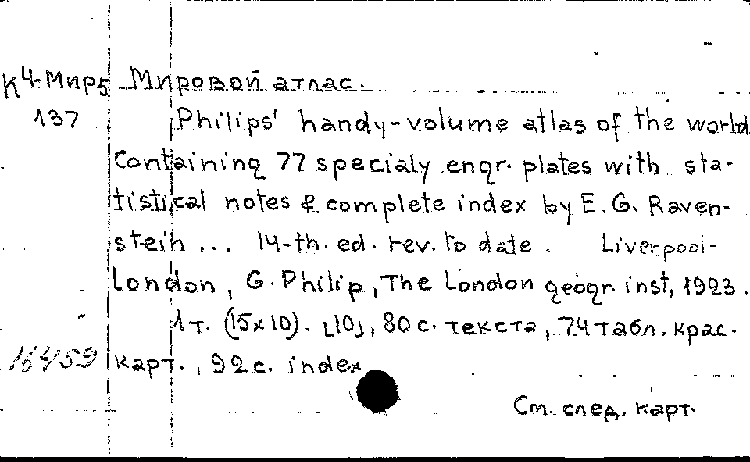 К4-Мир5 Мировой атлас.
137 Philips' handy-volume atlas of the world
containing 77 specialy engr. plates with sta-
tistical notes & complete index by E. G. Raven-
stein ... 14-th. ed. rev. to date. Liverpool-
London, G. Philip, The London geogr. inst, 1923.
1 т. (15x10). [10], 80 с. текста, 74 табл. крас.
16459 карт., 92 с. index
См. след. карт.